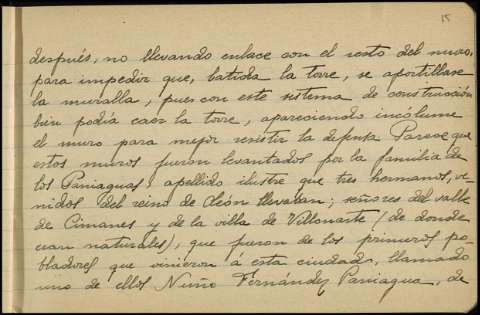 15
después, no llevando enlace con el resto del muro,
para impedir que, batida la torre, se aportillase
la muralla, pues con este sistema de construcción
bien podía caer la torre, apareciendo incólume
el muro para mejor resistir la defensa Parece que
estos muros fueron levantados por la familia de
los Paniaguas, apellido ilustre que tres hermanos, ve
nidos del reino de León llevaban; señores del valle
de Cimanes y de la villa de Villonarte (de donde
eran naturales), que fueron de los primeros po-
bladores que vinieron á esta ciudad, llamado
uno de ellos Nuño Fernández Paniagua, de